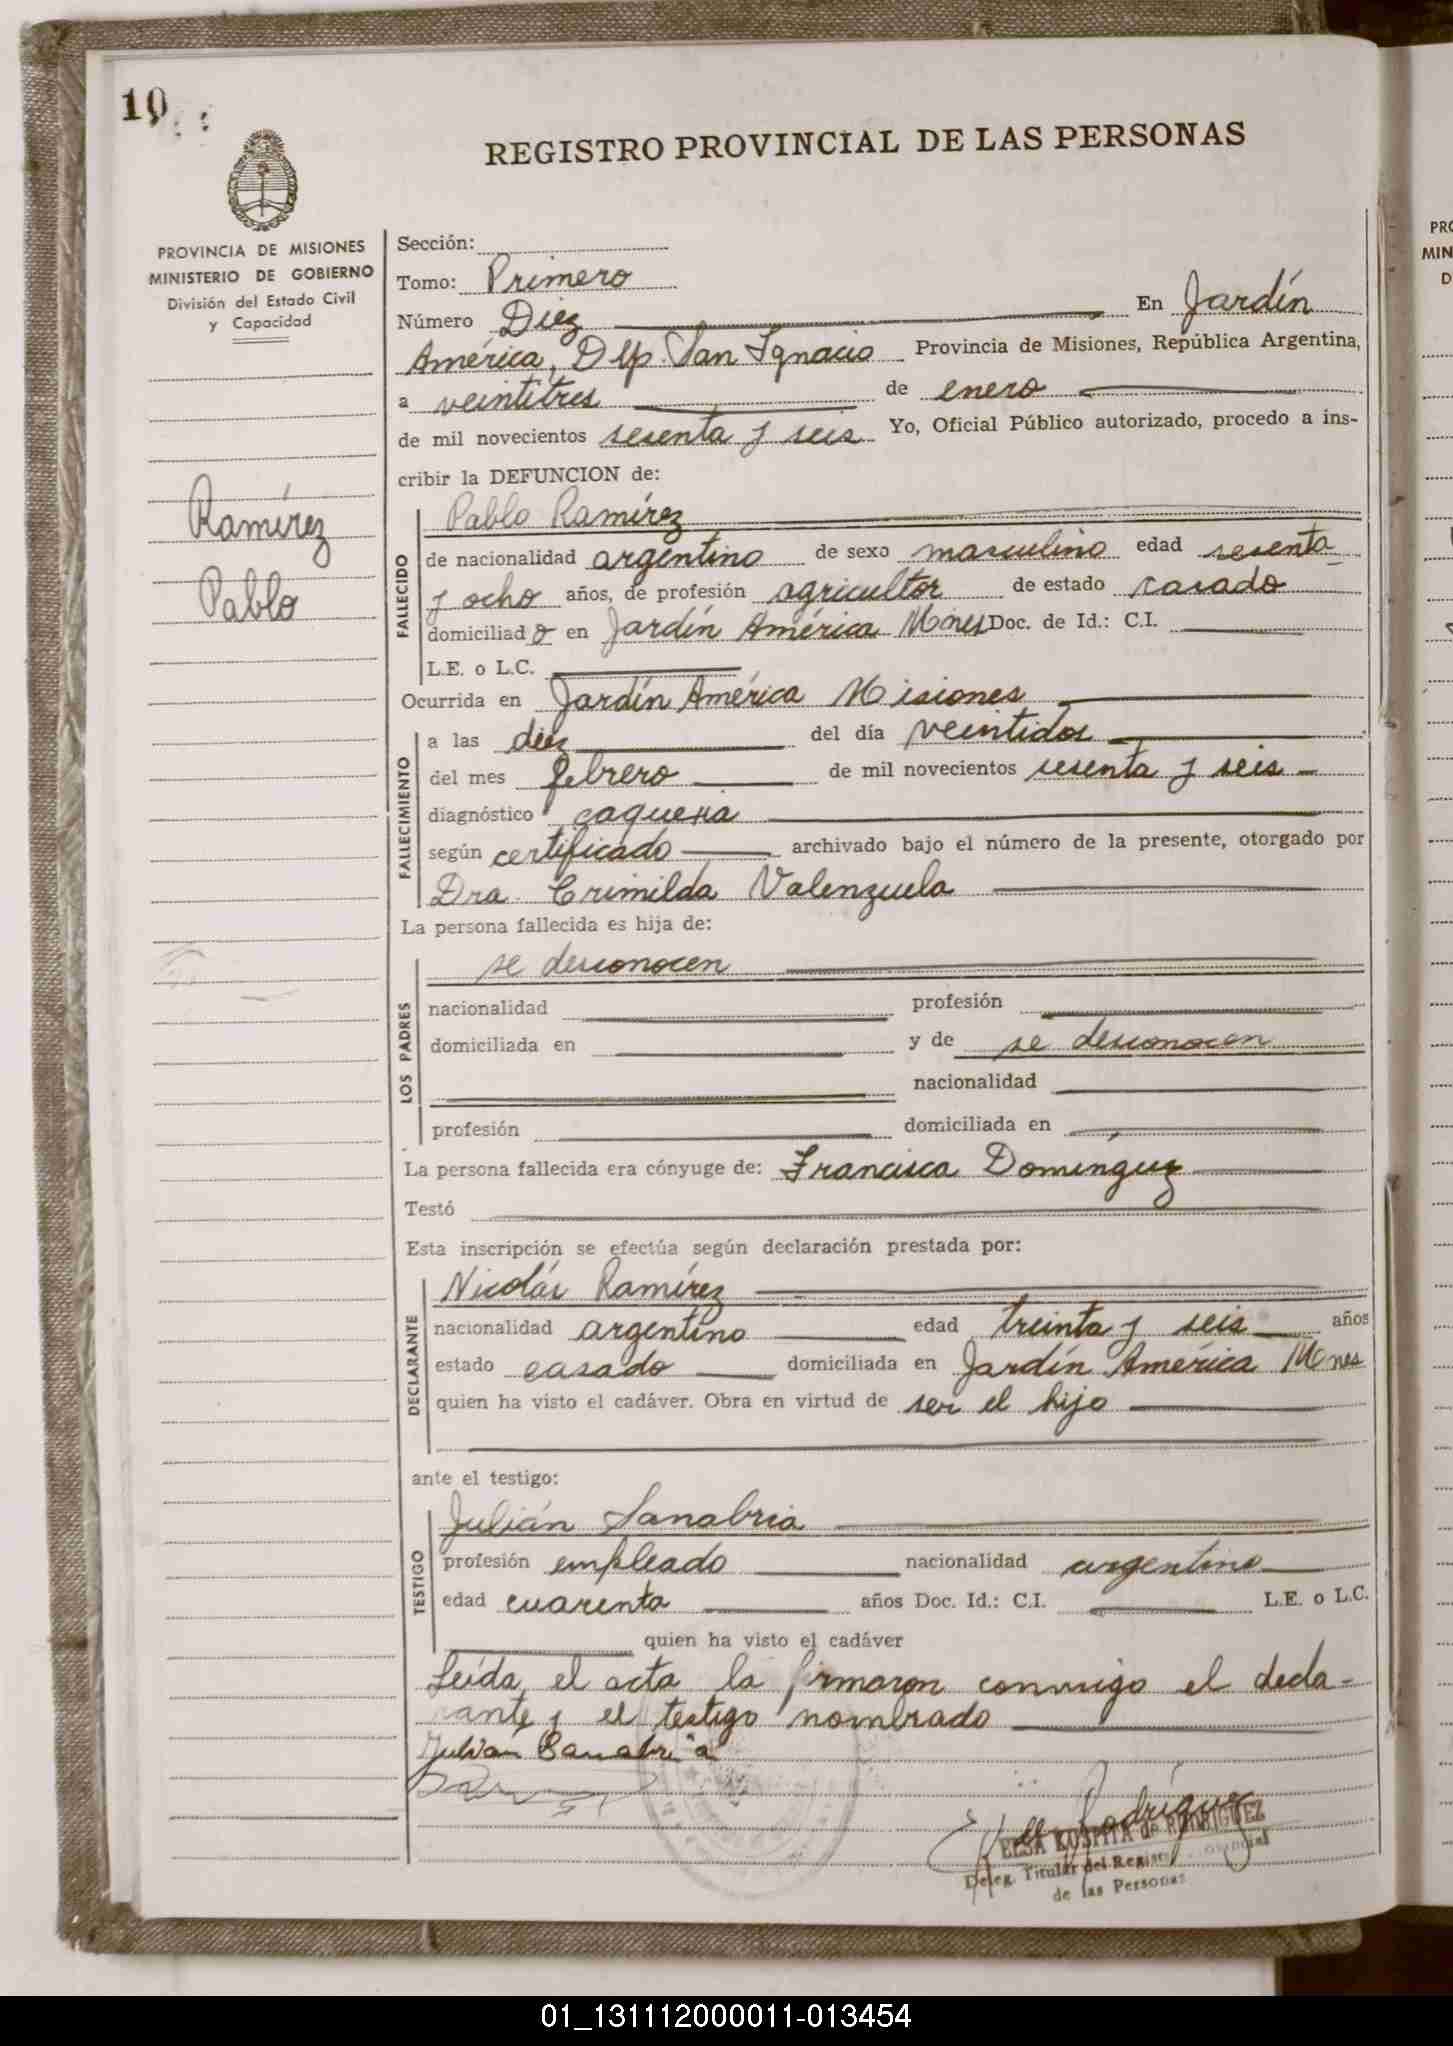 10
REGISTRO PROVINCIAL DE LAS PERSONAS
PROVINCIA DE MISIONES
MINISTERIO DE GOBIERNO
División del Estado Civil
y Capacidad
Ramírez
Pablo
Sección:
Tomo: Primero
Número Diez En Jardín
América, Dto. San Ignacio Provincia de Misiones, República Argentina,
a veintitres de enero
de mil novecientos sesenta y seis Yo, Oficial Público autorizado, procedo a ins-
cribir la DEFUNCION de:
FALLECIDO
Pablo Ramírez
de nacionalidad argentino de sexo masculino edad sesenta
y ocho años, de profesión agricultor de estado casado
domiciliado en Jardín América Mnes Doc. de Id.: C.I.
L.E. o L.C.
Ocurrida en Jardín América Misiones
FALLECIMIENTO
a las diez del día veintidos
del mes febrero de mil novecientos sesenta y seis
diagnóstico caquexia
según certificado archivado bajo el número de la presente, otorgado por
Dra. Crimilda Valenzuela
La persona fallecida es hija de:
LOS PADRES
se desconocen
nacionalidad profesión
domiciliada en y de se desconocen
nacionalidad
profesión domiciliada en
La persona fallecida era cónyuge de: Francisca Domínguez
Testó
Esta inscripción se efectúa según declaración prestada por:
DECLARANTE
Nicolás Ramírez
nacionalidad argentino edad treinta y seis años
estado casado domiciliada en Jardín América Mnes
quien ha visto el cadáver. Obra en virtud de ser el hijo
ante el testigo:
TESTIGO
Julián Sanabria
profesión empleado nacionalidad argentino
edad cuarenta años Doc. Id.: C.I. L.E. o L.C.
quien ha visto el cadáver
Leída el acta la firmaron conmigo el decla-
rante y el testigo nombrado
Julian Sanabria
Rodríguez
ELSA KOSMITA de RODRIGUEZ
Deleg. Titular del Registro Provincial
de las Personas
01_131112000011-013454